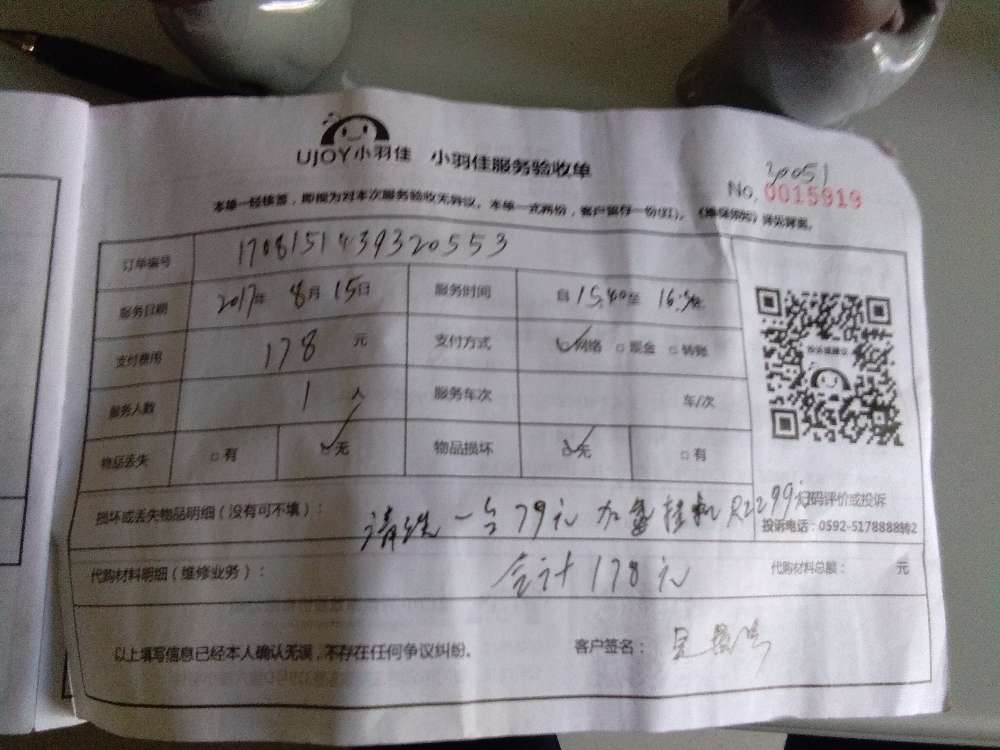 UJOY小羽佳 小羽佳服务验收单
30051
No. 0015919
本单一经核签，即视为对本次服务验收无异议。本单一式两份，客户留存一份(红)。《维保须知》详见背面。
订单编号 1708151439320553
服务日期 2017年 8月 15日 服务时间 自 15:40至
支付费用 178 元 支付方式 ☑网络 □现金 □转账
服务人数 1 人 服务车次 车/次
物品丢失 □有 ☑无 物品损坏 ☑无 □有
投诉或建议
损坏或丢失物品明细（没有可不填）： 清洗一台79元 加 挂机R22 99元
扫码评价或投诉
投诉电话：0592-5178888转2
代购材料明细（维修业务）： 合计178元 代购材料总额： 元
以上填写信息已经本人确认无误，不存在任何争议纠纷。 客户签名：